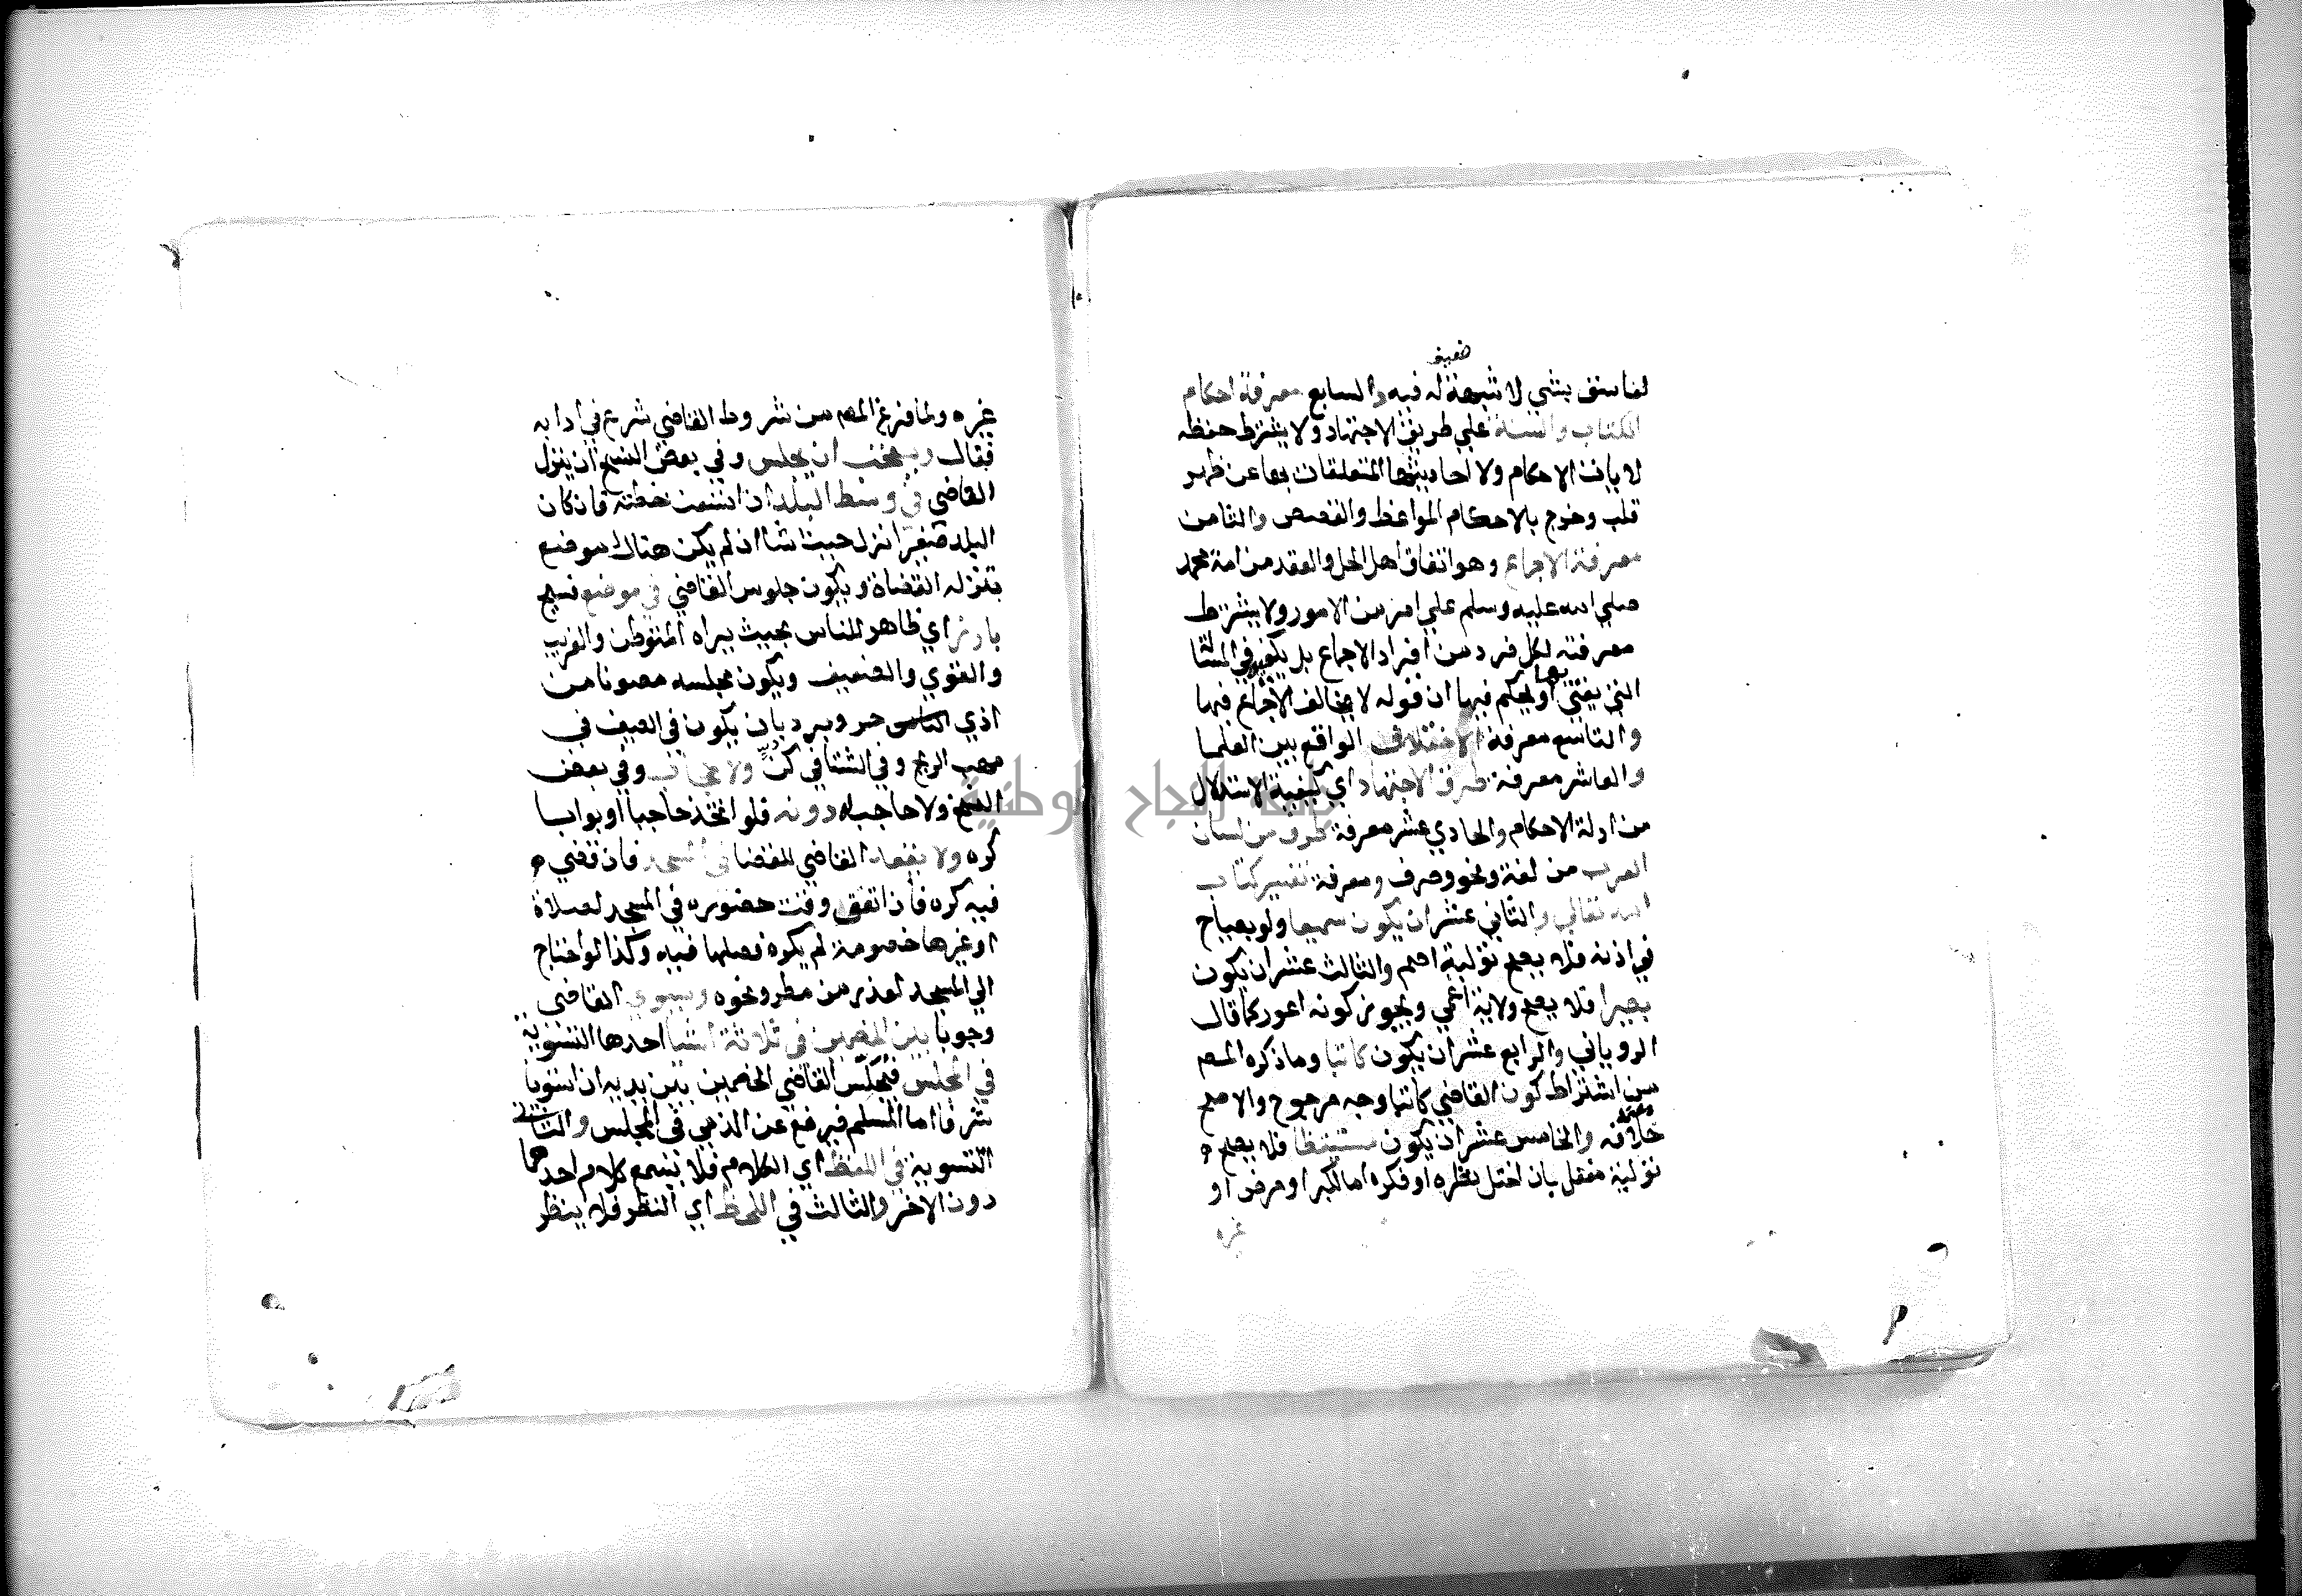 ضعيفه
لفاسق بشي لا شبهة له فيه والسابع معرفة احكام
الكتاب والسنة علي طريق الاجتهاد ولا يشترط حفظه
لايات الاحكام ولا احاديثها المتعلقات بها عن ظهر
قلب وخرج بالاحكام المواعظ والقصص والثامن
معرفة الاجماع وهو اتفاق اهل الحل والعقد من امة محمد
صلي الله عليه وسلم علي امر من الامور ولا يشترط
معرفته لكل فرد من افراد الاجماع بل يكفيه في المسئلة
التي يفتي بها او يحكم فيها ان قوله لا يخالف الاجماع فيها
والتاسع معرفة الاختلاف الواقع بين العلما
والعاشر معرفة طرق الاجتهاد اي كيفية الاستدلال
من ادلة الاحكام والحادي عشر معرفة طرف من لسان
العرب من لغة ونحو وصرف ومعرفة تفسير كتاب
الله تعالي والثاني عشر ان يكون سميعا ولو بصياح
في اذنه فلا يصح تولية اصم والثالث عشر ان يكون
بصيرا فلا يصح ولاية اعمي ويجوز كونه اعور كما قال
الروياني والرابع عشر ان يكون كاتبا وما ذكره المصم
من اشتراط كون القاضي كاتبا وجه مرجوح والاصح
خلافه والخامس عشر ان يكون مستيقظا فلا يصح
تولية مغفل بان اختل نظره او فكره اما لكبر او مرض او
غيره
غيره ولما فرغ المصم من شروط القاضي شرع في ادابه
فقال ويستحب ان يجلس وفي بعض النسخ ان ينزل
القاضي في وسط البلد ان اتسعت خطته فان كان
البلد صغيرا نزل حيث شا ان لم يكن هناك موضع
تنزله القضاة ويكون جلوس القاضي في موضع فسيح
بارز اي ظاهر للناس بحيث يراه المتوطن والغريب
والقوي والضعيف ويكون مجلسه مصونا من
اذي حر وبرد بان يكون في الصيف في
مهب الريح وفي الشتا في كن ولا حجاب وفي بعض
النسخ ولا حاجب دونه فلو اتخذ حاجبا او بوابا
كره ولا يقعد القاضي للقضا في المسجد فان قضي
فيه كره فان اتفق وقت حضوره في المسجد لصلاة
او غيرها خصومة لم يكره فصلها فيه وكذا لو احتاج
الي المسجد لعذر من مطر ونحوه ويسوي القاضي
وجوبا بين الخصمين في ثلاثة اشيا احدها التسوية
في المجلس فيجلس القاضي الخصمين بين يديه ان استويا
شرفا اما المسلم فيرفع عن الذمي في المجلس والثاني
التسوية في اللفظ اي الكلام فلا يسمع كلام احدهما
دون الاخر والثالث في اللحظ اي النظر فلا ينظر
جامعة النجاح الوطنية